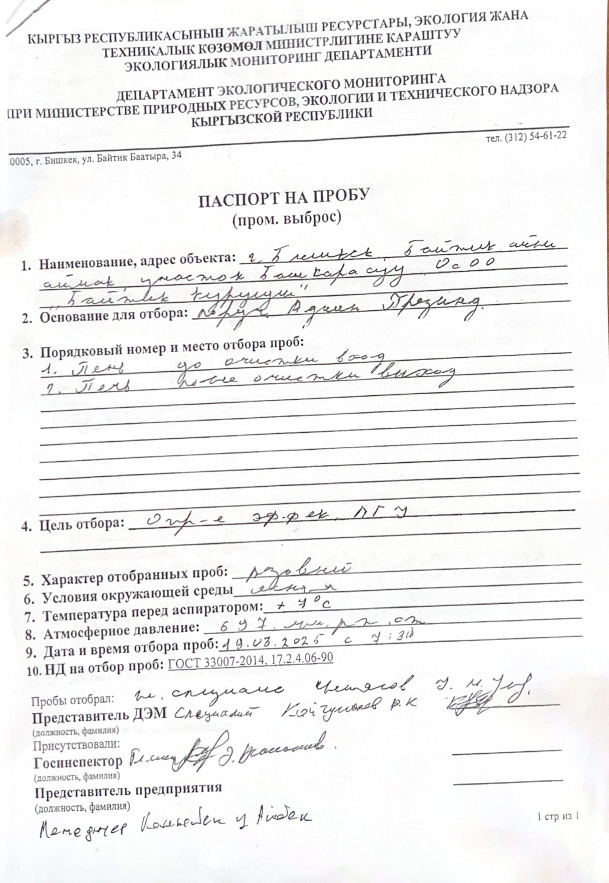 КЫРГЫЗ РЕСПУБЛИКАСЫНЫН ЖАРАТЫЛЫШ РЕСУРСТАРЫ, ЭКОЛОГИЯ ЖАНА
ТЕХНИКАЛЫК КӨЗӨМӨЛ МИНИСТРЛИГИНЕ КАРАШТУУ
ЭКОЛОГИЯЛЫК МОНИТОРИНГ ДЕПАРТАМЕНТИ
ДЕПАРТАМЕНТ ЭКОЛОГИЧЕСКОГО МОНИТОРИНГА
ПРИ МИНИСТЕРСТВЕ ПРИРОДНЫХ РЕСУРСОВ, ЭКОЛОГИИ И ТЕХНИЧЕСКОГО НАДЗОРА
КЫРГЫЗСКОЙ РЕСПУБЛИКИ
0005, г. Бишкек, ул. Байтик Баатыра, 34
тел. (312) 54-61-22
ПАСПОРТ НА ПРОБУ
(пром. выброс)
1. Наименование, адрес объекта: г. Бишкек, Байтик айыл
аймак, участок Башкарасуу ОсОО
„Байтик курулуш"
2. Основание для отбора:
3. Порядковый номер и место отбора проб:
1. Печь до очистки вход
2. Печь после очистки выход
4. Цель отбора: Опр-е эффек. ПГУ
5. Характер отобранных проб: разовый
6. Условия окружающей среды
7. Температура перед аспиратором: + 7°С
8. Атмосферное давление: 697 мм. рт. ст
9. Дата и время отбора проб: 19.03.2025 с 7:30
10. НД на отбор проб: ГОСТ 33007-2014, 17.2.4.06-90
Пробы отобрал: гл. специалис
Представитель ДЭМ Специалист
(должность, фамилия)
Присутствовали:
Госинспектор
(должность, фамилия)
Представитель предприятия
(должность, фамилия)
Менеджер Айбек
1 стр из 1